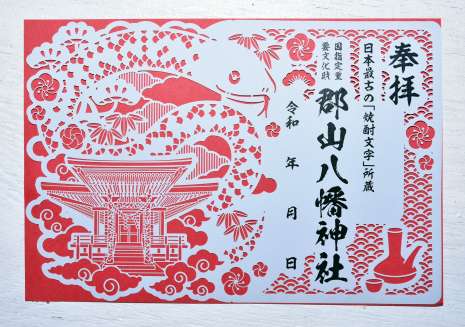 奉拝
日本最古の「焼酎文字」所蔵
郡山八幡神社
国指定重
要文化財
令和 年 月 日